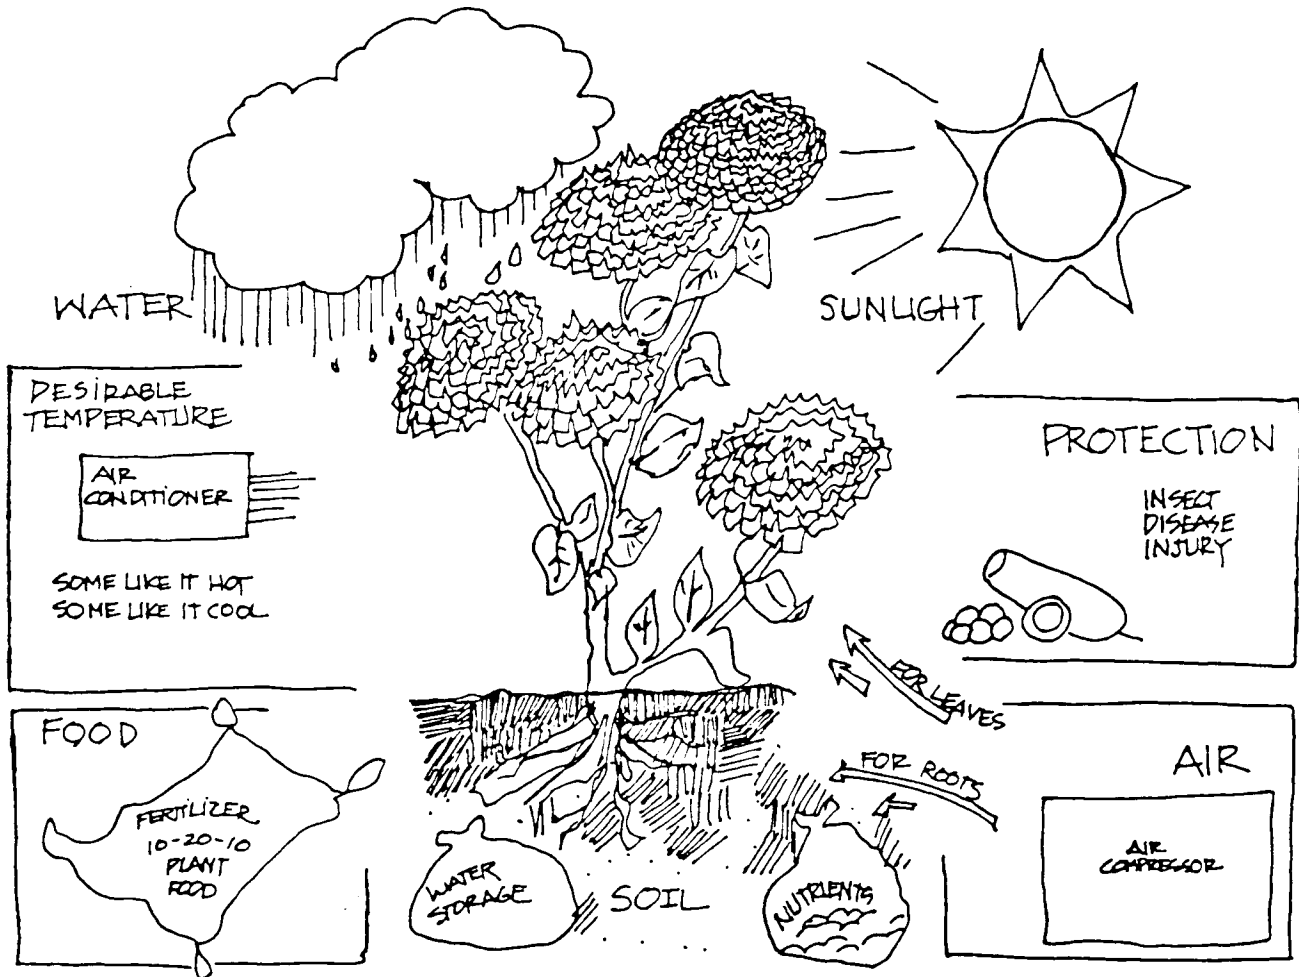 WATER
SUNLIGHT
DESIRABLE
TEMPERATURE
AIR
CONDITIONER
SOME LIKE IT HOT
SOME LIKE IT COOL
PROTECTION
INSECT
DISEASE
INJURY
FOOD
FERTILIZER
10-20-10
PLANT
FOOD
WATER
STORAGE
SOIL
NUTRIENTS
FOR LEAVES
FOR ROOTS
AIR
AIR
COMPRESSOR